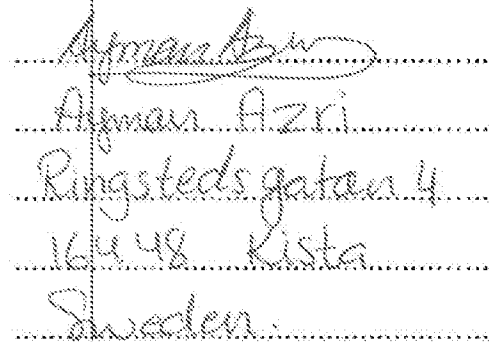 Ayman Azri
Ayman Azri
Ringstedsgatan 4
164 48 Kista
Sweden.